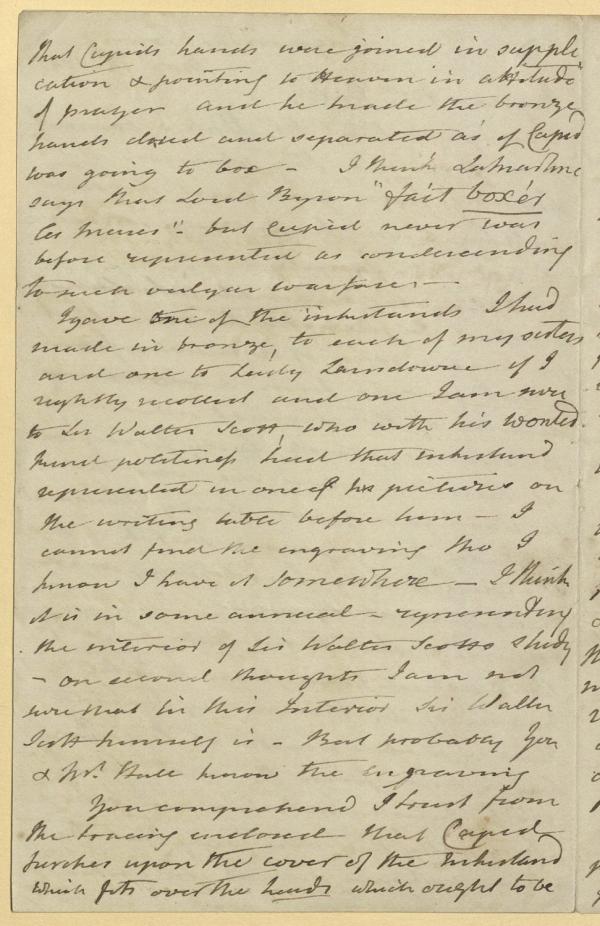 that Cupids hands were joined in suppli
cation & pointing to Heaven in attitude
of prayer and he made the bronze
hands closed and separated as if Cupid
was going to box – I think Lamartine
says that Lord Byron "fait boxer
les Muses" – but Cupid never was
before represented as condescending
to such vulgar warfare –
I gave one of the inkstands I had
made in bronze, to each of my sisters
and one to Lady Lansdowne if I
rightly recollect and one I am sure
to Sir Walter Scott, who with his wonted
kind politeness had that inkstand
represented in one of his pictures on
the writing table before him – I
cannot find the engraving tho I
know I have it somewhere – I think
it is in some annual – representing
the interior of Sir Walter Scotts study
– on second thoughts I am not
sure that in this Interior Sir Walter
Scott himself is – But probably You
& Mr. Hall know the engraving
You comprehend I trust from
the tracing enclosed that Cupid
perches upon the cover of the Inkstand
which fits over the heads which ought to be